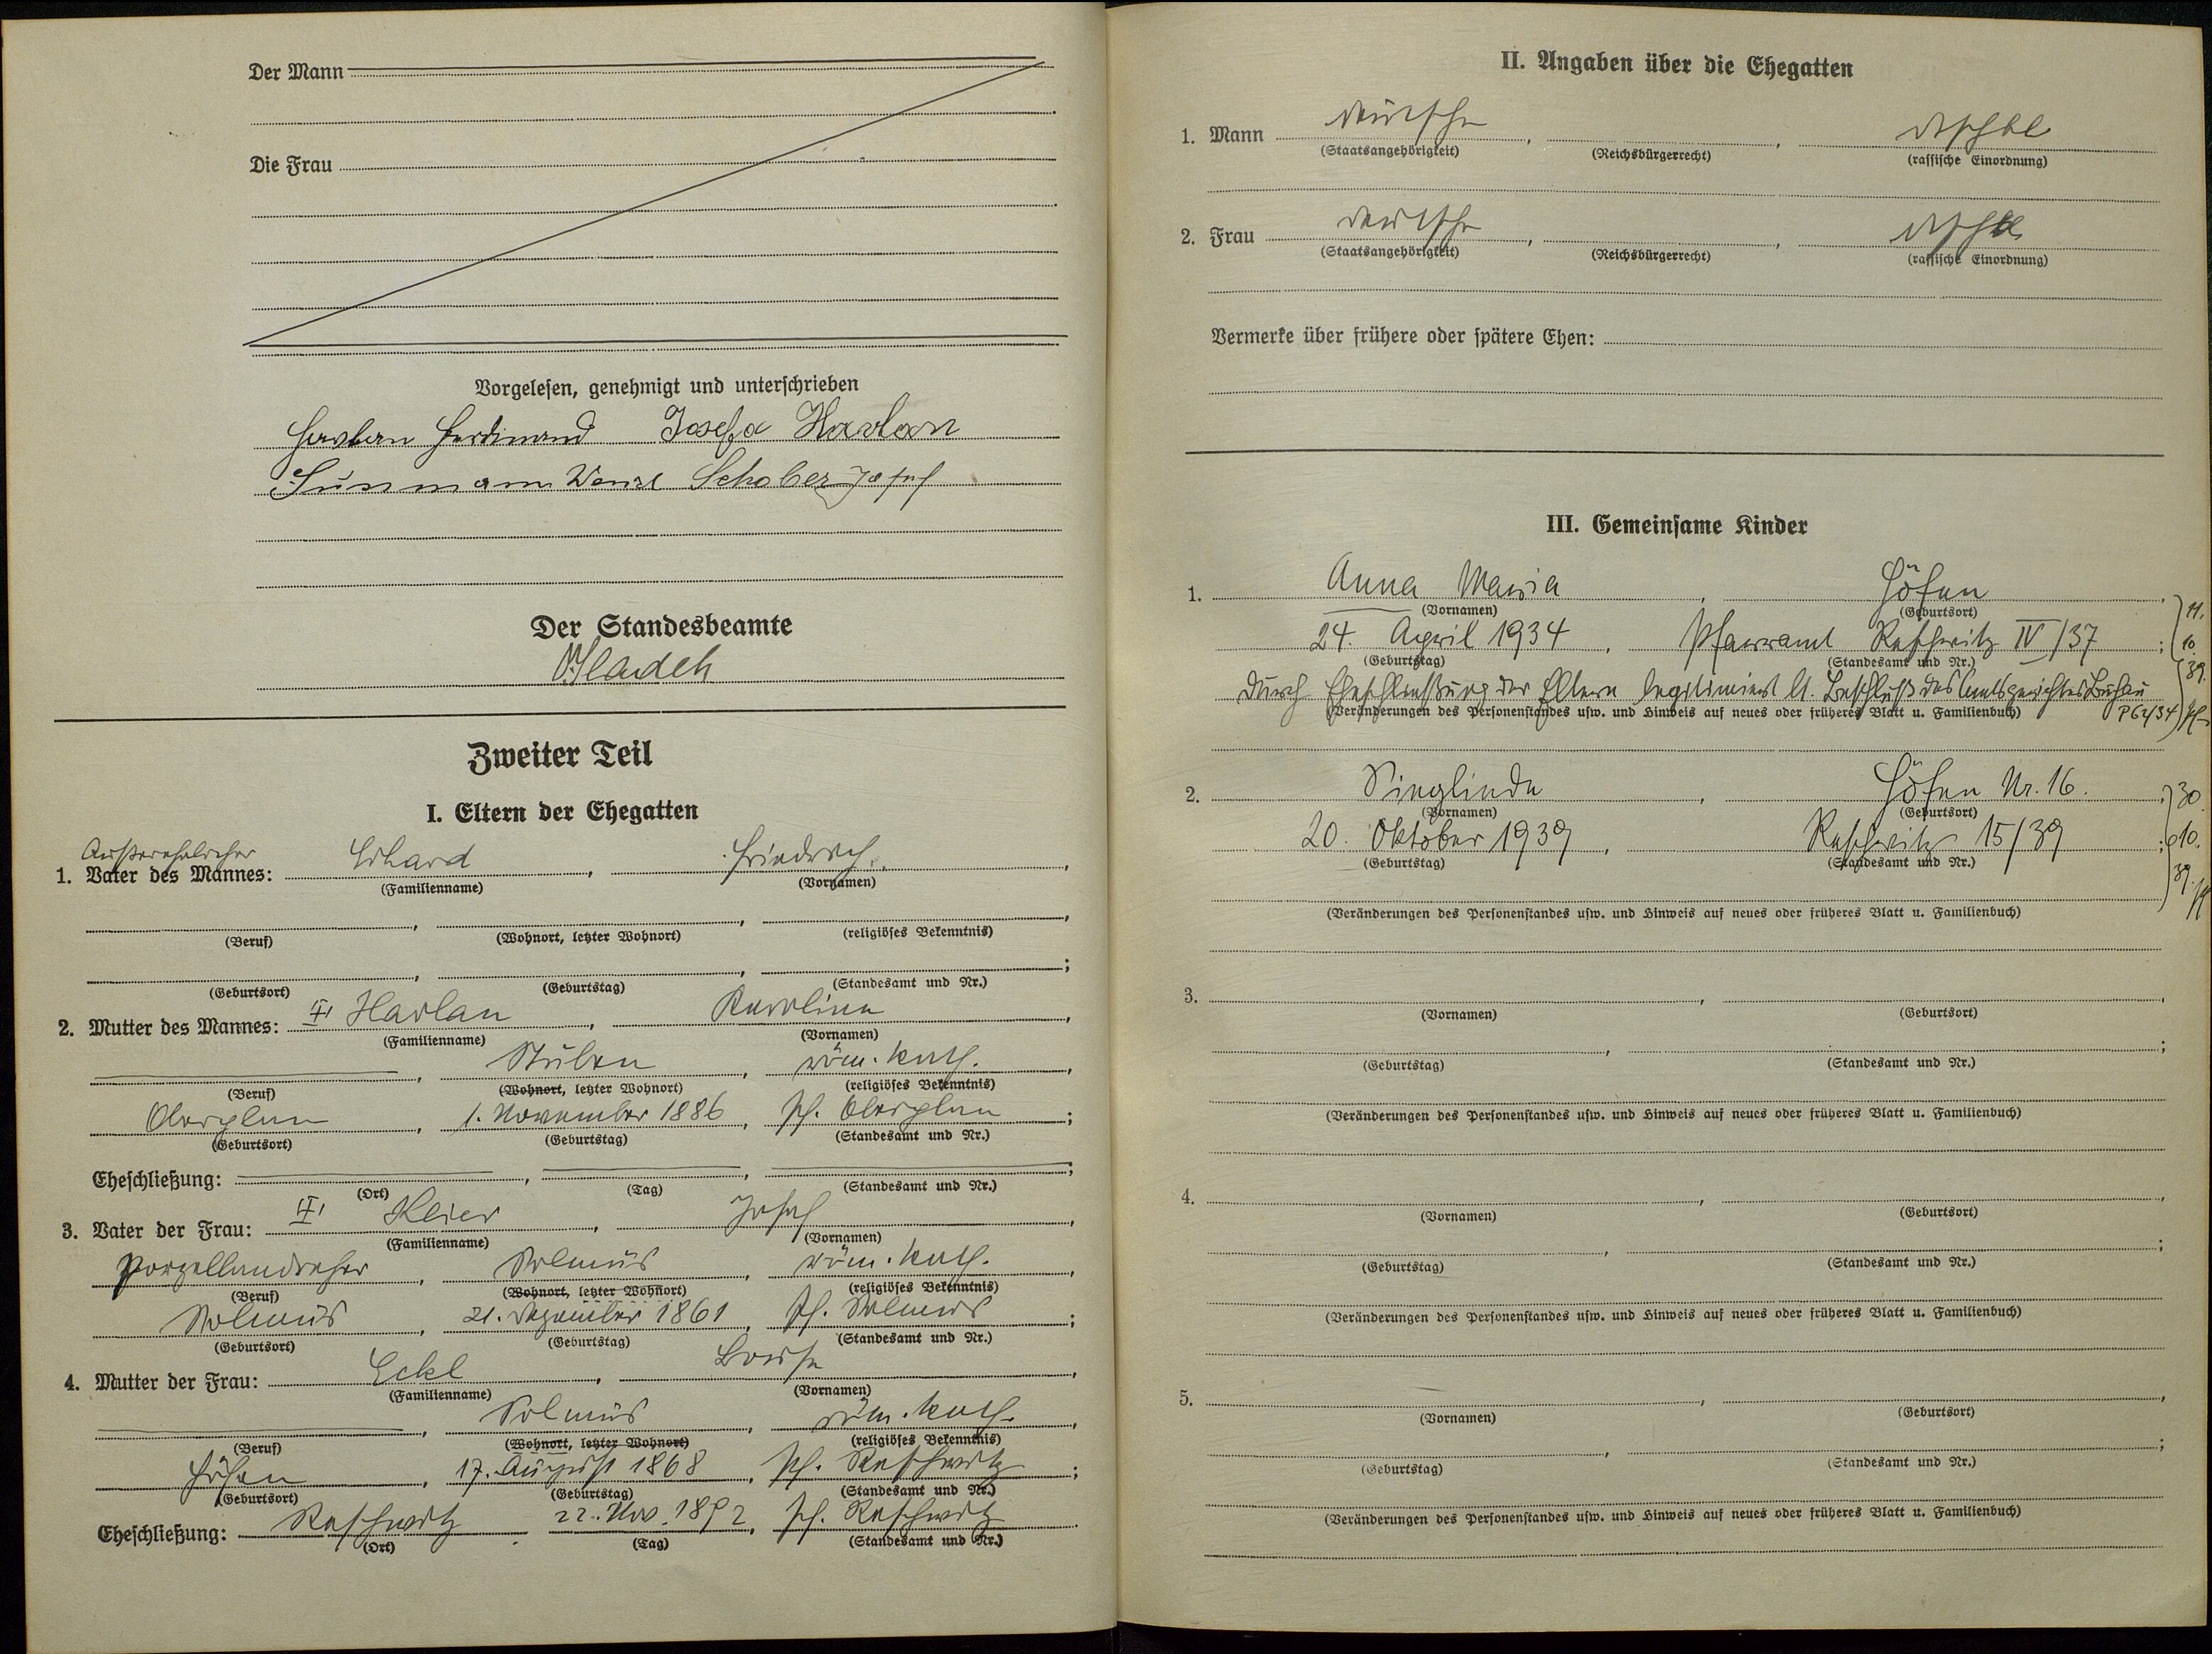 Der Mann
Die Frau
Vorgelesen, genehmigt und unterschrieben
Havlan Ferdinand Josefa Havlan
Wenzl Schober Josef
Der Standesbeamte
Zweiter Teil
I. Eltern der Ehegatten
Außerehelicher
1. Vater des Mannes: Erhard, Friedrich,
(Familienname) (Vornamen)
(Beruf) (Wohnort, letzter Wohnort) (religiöses Bekenntnis)
(Geburtsort) (Geburtstag) (Standesamt und Nr.)
2. Mutter des Mannes: Havlan, Karoline,
(Familienname) (Vornamen)
Stüben, röm. kath.,
(Beruf) (Wohnort, letzter Wohnort) (religiöses Bekenntnis)
Oberplan, 1. November 1886, Pf. Oberplan;
(Geburtsort) (Geburtstag) (Standesamt und Nr.)
Eheschließung:
(Ort) (Tag) (Standesamt und Nr.)
3. Vater der Frau: Heier, Josef,
(Familienname) (Vornamen)
Porzellandreher, Solmus, röm. kath.,
(Beruf) (Wohnort, letzter Wohnort) (religiöses Bekenntnis)
Solmus, 21. Dezember 1861, Pf. Solmus;
(Geburtsort) (Geburtstag) (Standesamt und Nr.)
4. Mutter der Frau: Eckl, Luise,
(Familienname) (Vornamen)
Solmus, röm. kath.,
(Beruf) (Wohnort, letzter Wohnort) (religiöses Bekenntnis)
Höfen, 17. August 1868, Pf. Reschwitz;
(Geburtsort) (Geburtstag) (Standesamt und Nr.)
Eheschließung: Reschwitz, 22. Nov. 1892, Pf. Reschwitz.
(Ort) (Tag) (Standesamt und Nr.)
II. Angaben über die Ehegatten
1. Mann deutsche, , dtschbl
(Staatsangehörigkeit) (Reichsbürgerrecht) (rassische Einordnung)
2. Frau deutsche, , dtschbl
(Staatsangehörigkeit) (Reichsbürgerrecht) (rassische Einordnung)
Vermerke über frühere oder spätere Ehen:
III. Gemeinsame Kinder
1. Anna Maria, Höfen,
(Vornamen) (Geburtsort)
24. April 1934, Pfarramt Reschwitz IV/37; 11. 10. 39.
(Geburtstag) (Standesamt und Nr.)
Durch Eheschließung der Eltern legitimiert lt. Beschluß des Amtsgerichtes Buchau
(Veränderungen des Personenstandes usw. und Hinweis auf neues oder früheres Blatt u. Familienbuch)
2. Sieglinde, Höfen Nr. 16.
(Vornamen) (Geburtsort)
20. Oktober 1939, Reschwitz 15/39; 30. 10. 39.
(Geburtstag) (Standesamt und Nr.)
(Veränderungen des Personenstandes usw. und Hinweis auf neues oder früheres Blatt u. Familienbuch)
3.
(Vornamen) (Geburtsort)
(Geburtstag) (Standesamt und Nr.)
(Veränderungen des Personenstandes usw. und Hinweis auf neues oder früheres Blatt u. Familienbuch)
4.
(Vornamen) (Geburtsort)
(Geburtstag) (Standesamt und Nr.)
(Veränderungen des Personenstandes usw. und Hinweis auf neues oder früheres Blatt u. Familienbuch)
5.
(Vornamen) (Geburtsort)
(Geburtstag) (Standesamt und Nr.)
(Veränderungen des Personenstandes usw. und Hinweis auf neues oder früheres Blatt u. Familienbuch)